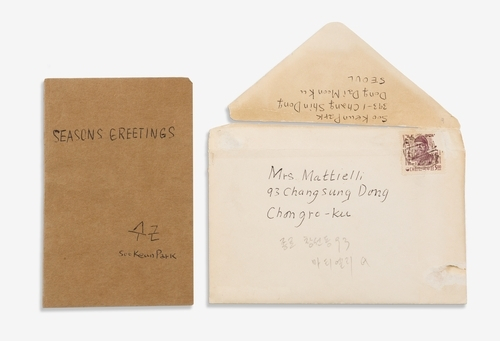 SEASONS GREETINGS
Soo Keun Park
Soo Keun Park
393-1 Chang Shin Dong
Dong Dai Moon Ku
SEOUL
Mrs Mattielli
93 Changsung Dong
Chongro-ku
종로 창성동 93
마티엘리